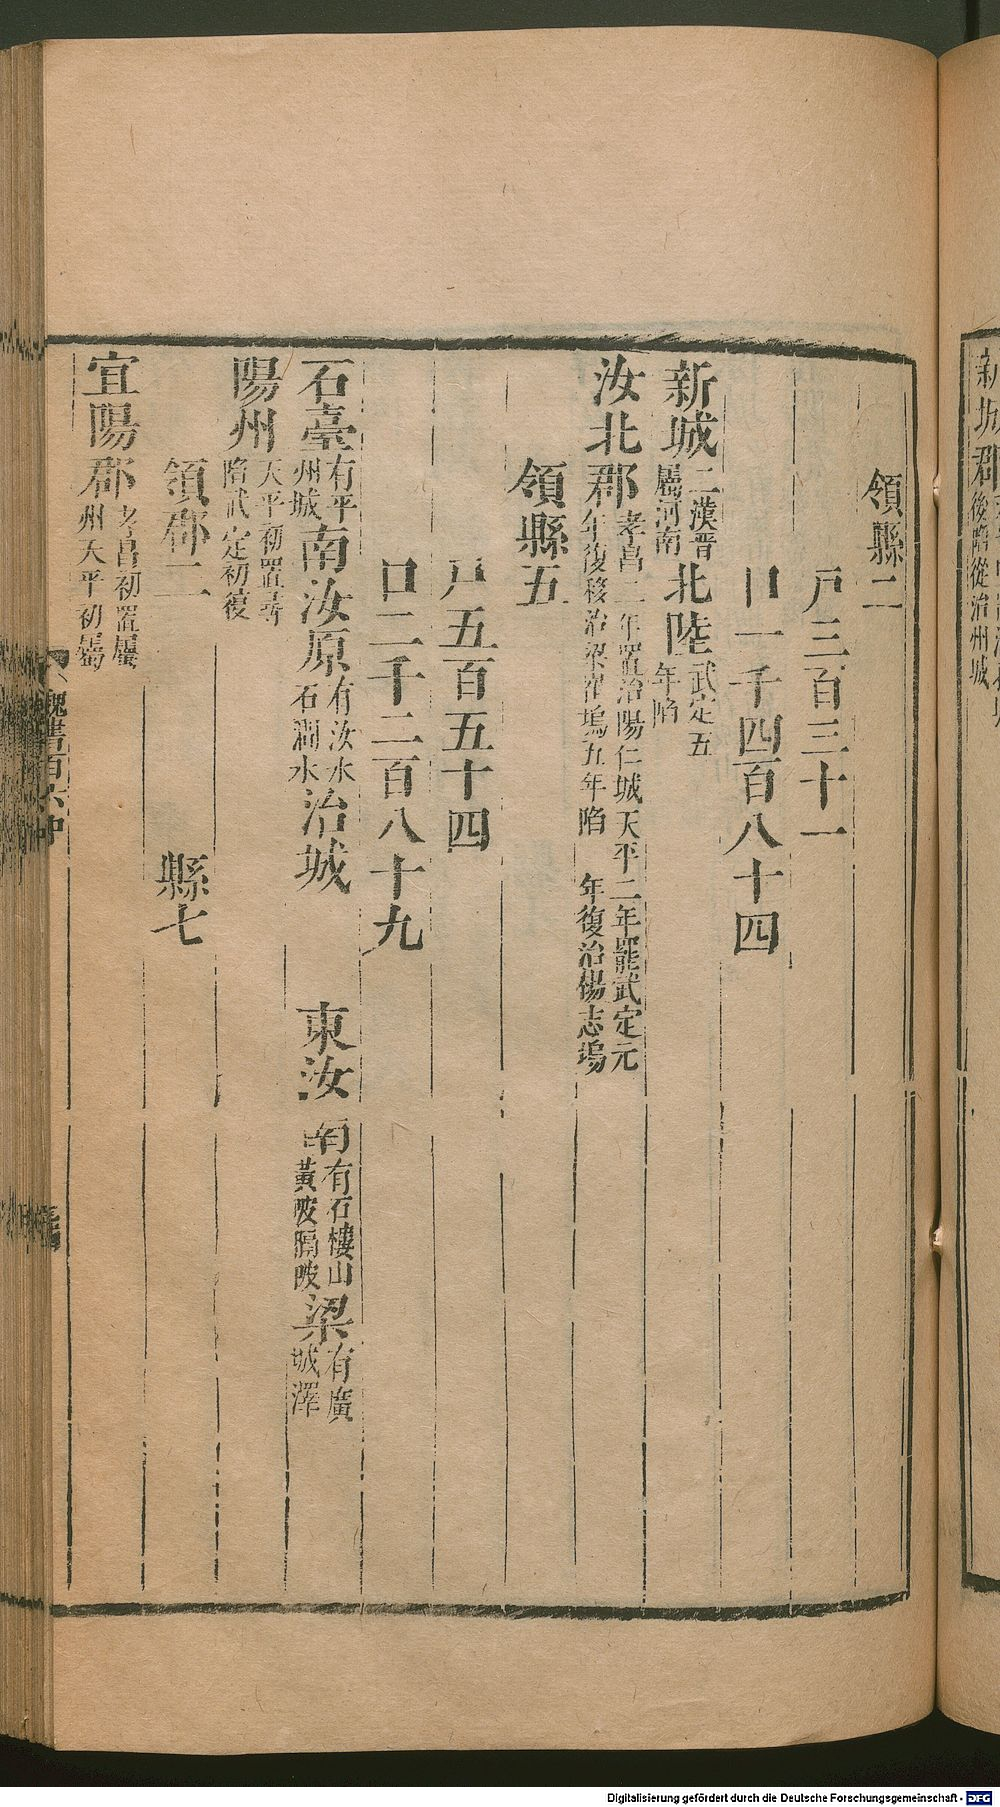 新城郡
後陷從治州城
領縣二
戸三百三十一
口一千四百八十四
新城二漢晋屬河南北陸武定五年陷
汝北郡孝昌二年置治陽仁城天平二年罷武定元年復移治梁霍塢五年陷年復治楊志塢
領縣五
戸五百五十四
口二千二百八十九
石臺有平州城南汝原有汝水石澗水治城東汝南有石樓山黃陂隔陂梁有廣城澤
陽州天平初置尋陷武定初復
領郡二縣七
宜陽郡孝昌初置屬州天平初屬
魏書百六中
Digitalisierung gefördert durch die Deutsche Forschungsgemeinschaft - DFG